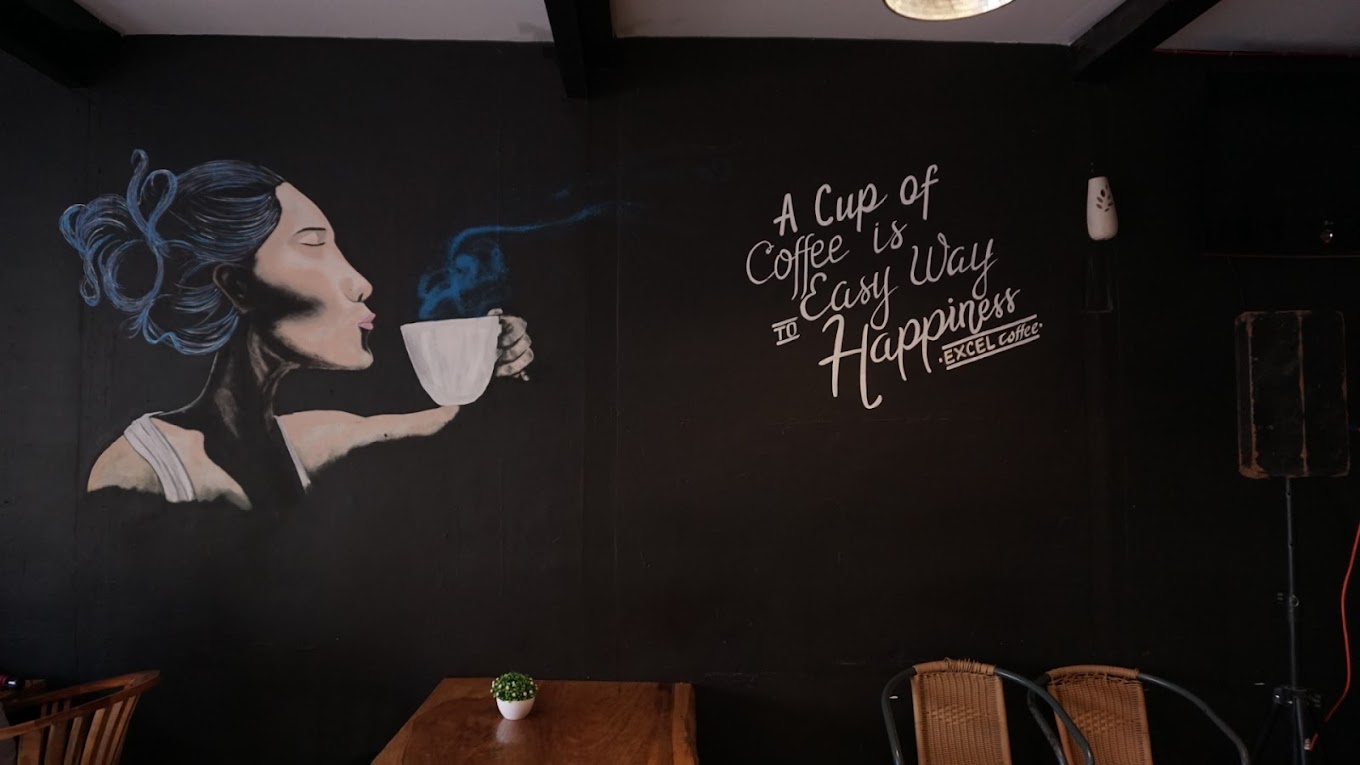 A Cup of
Coffee is
Easy Way
TO
Happiness
EXCEL Coffee